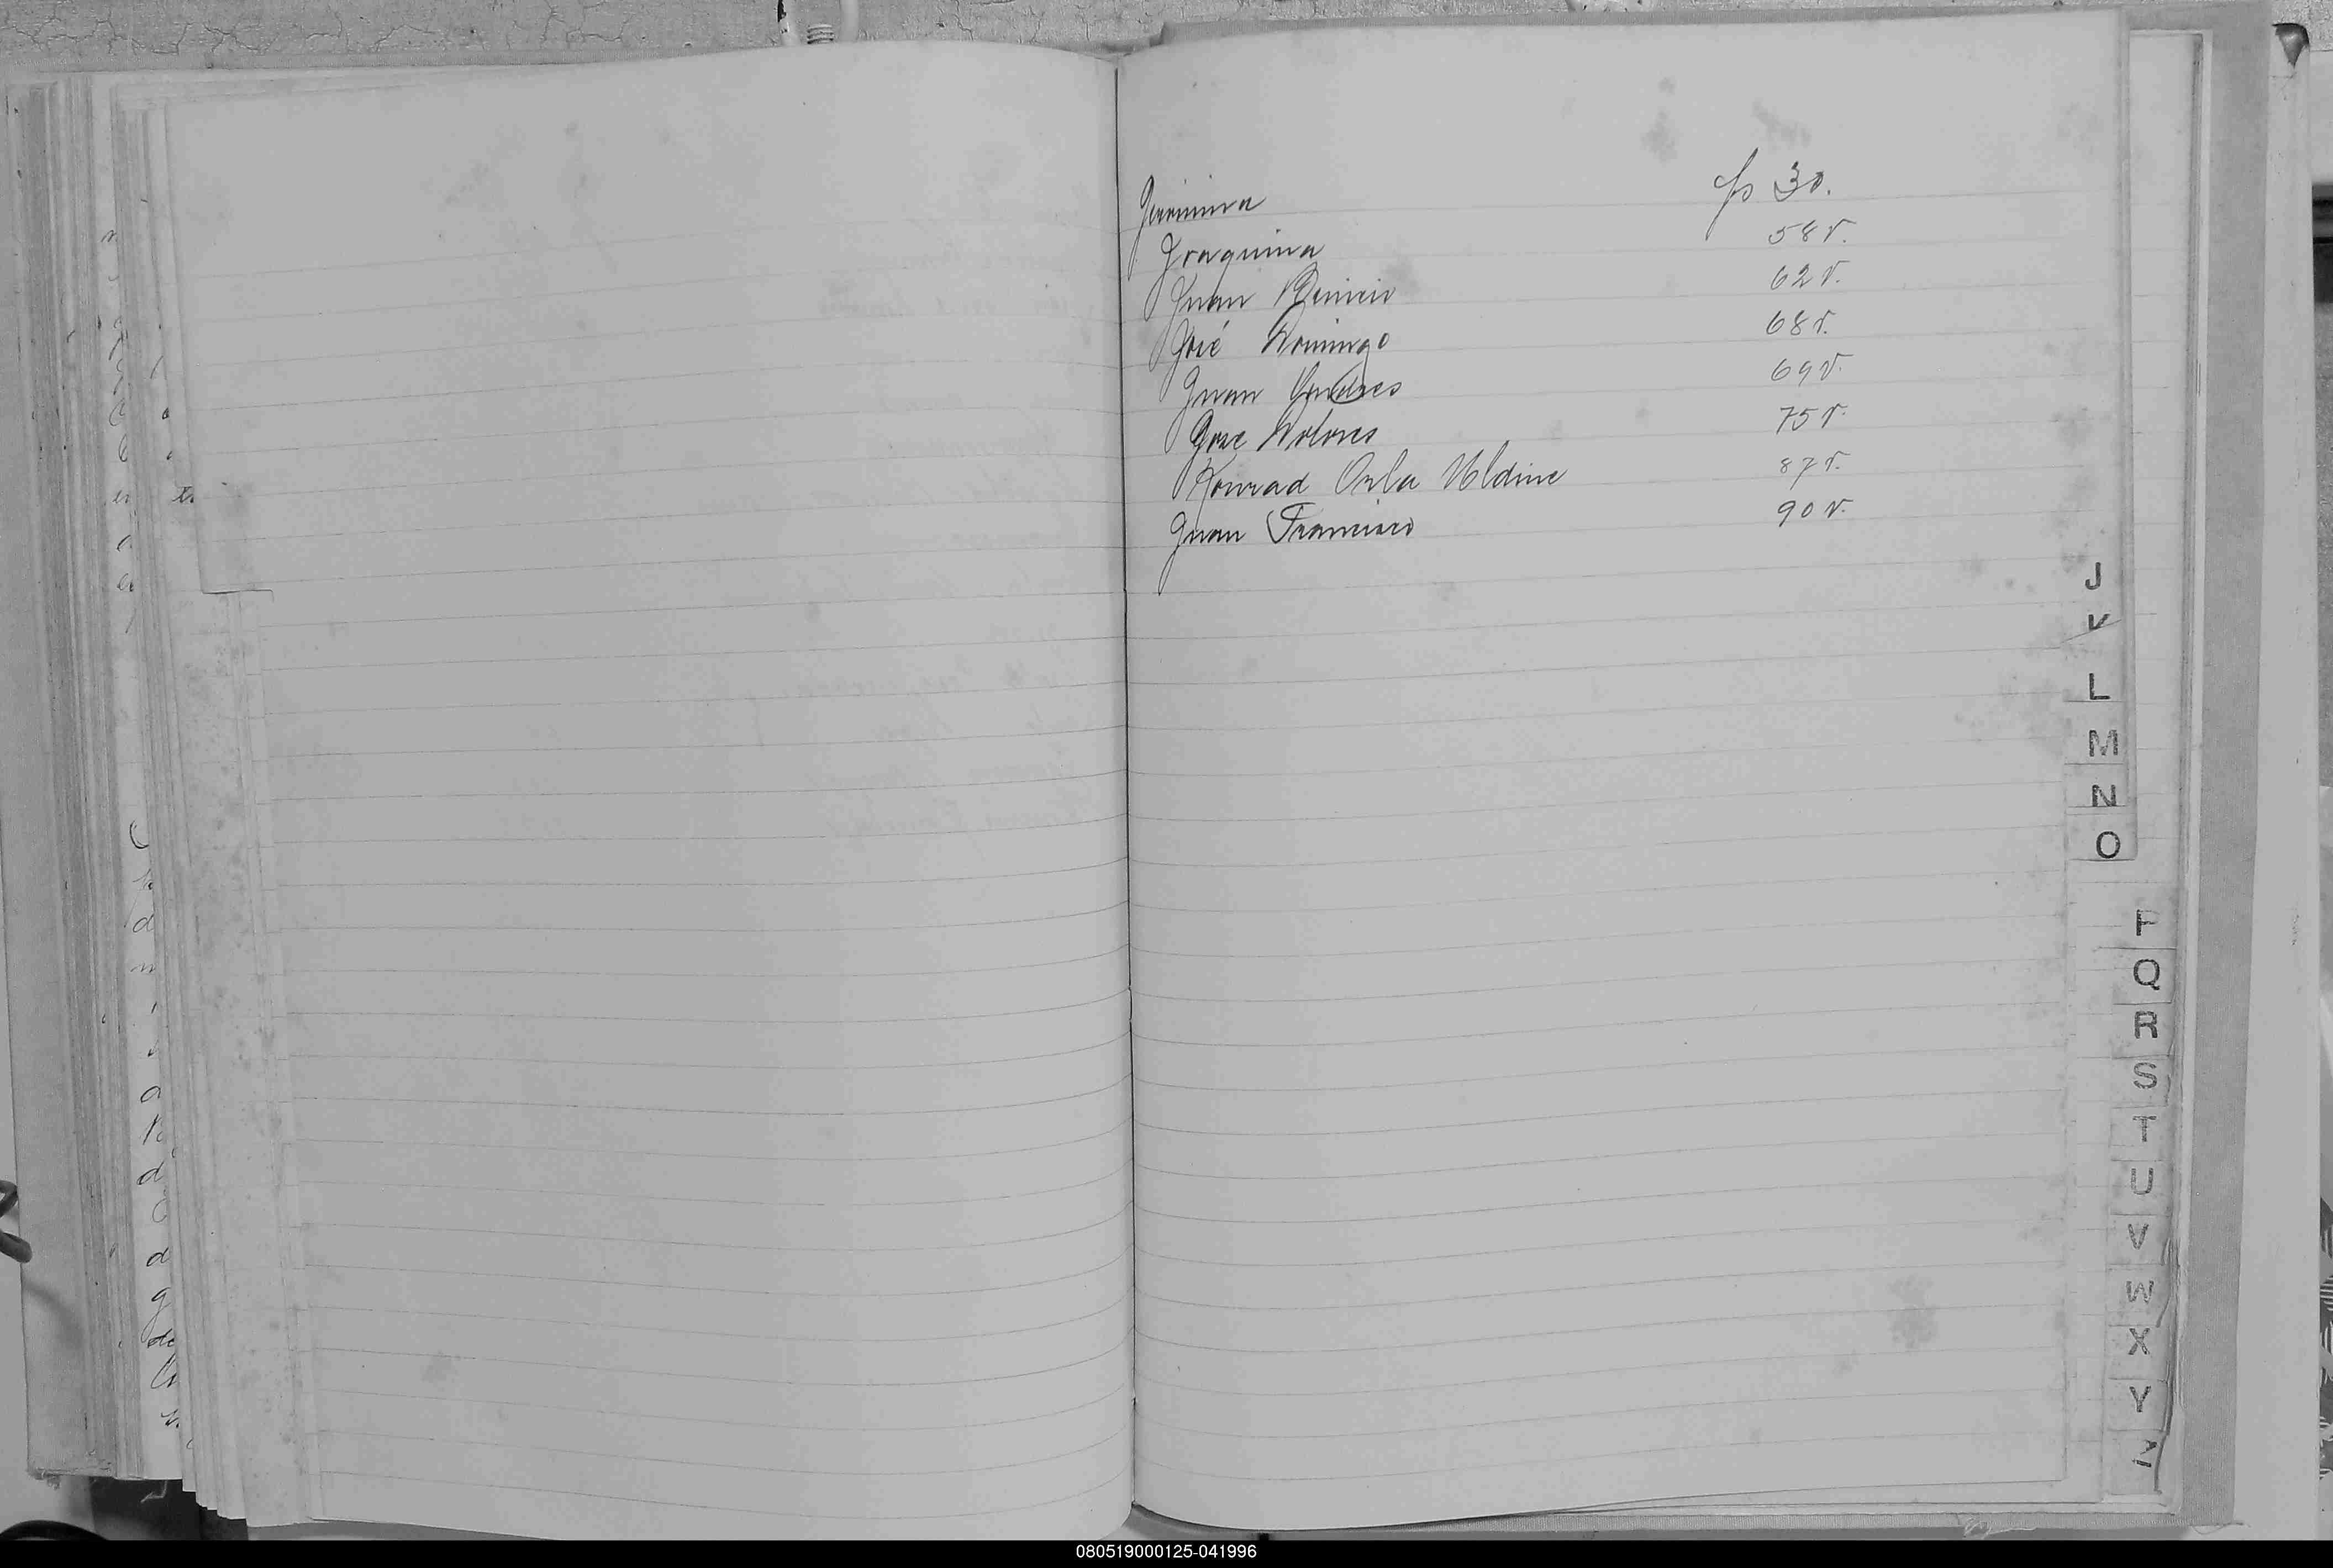 Jeronima fs 30.
Joaquina 58 v.
Juan Benicio 62 v.
José Domingo 68 v.
Juan Andres 69 v.
Jose Dolores 75 v.
Konrad Orla Uldine 87 v.
Juan Francisco 90 v.
J
K
L
M
N
O
P
Q
R
S
T
U
V
W
X
Y
Z
080519000125-041996